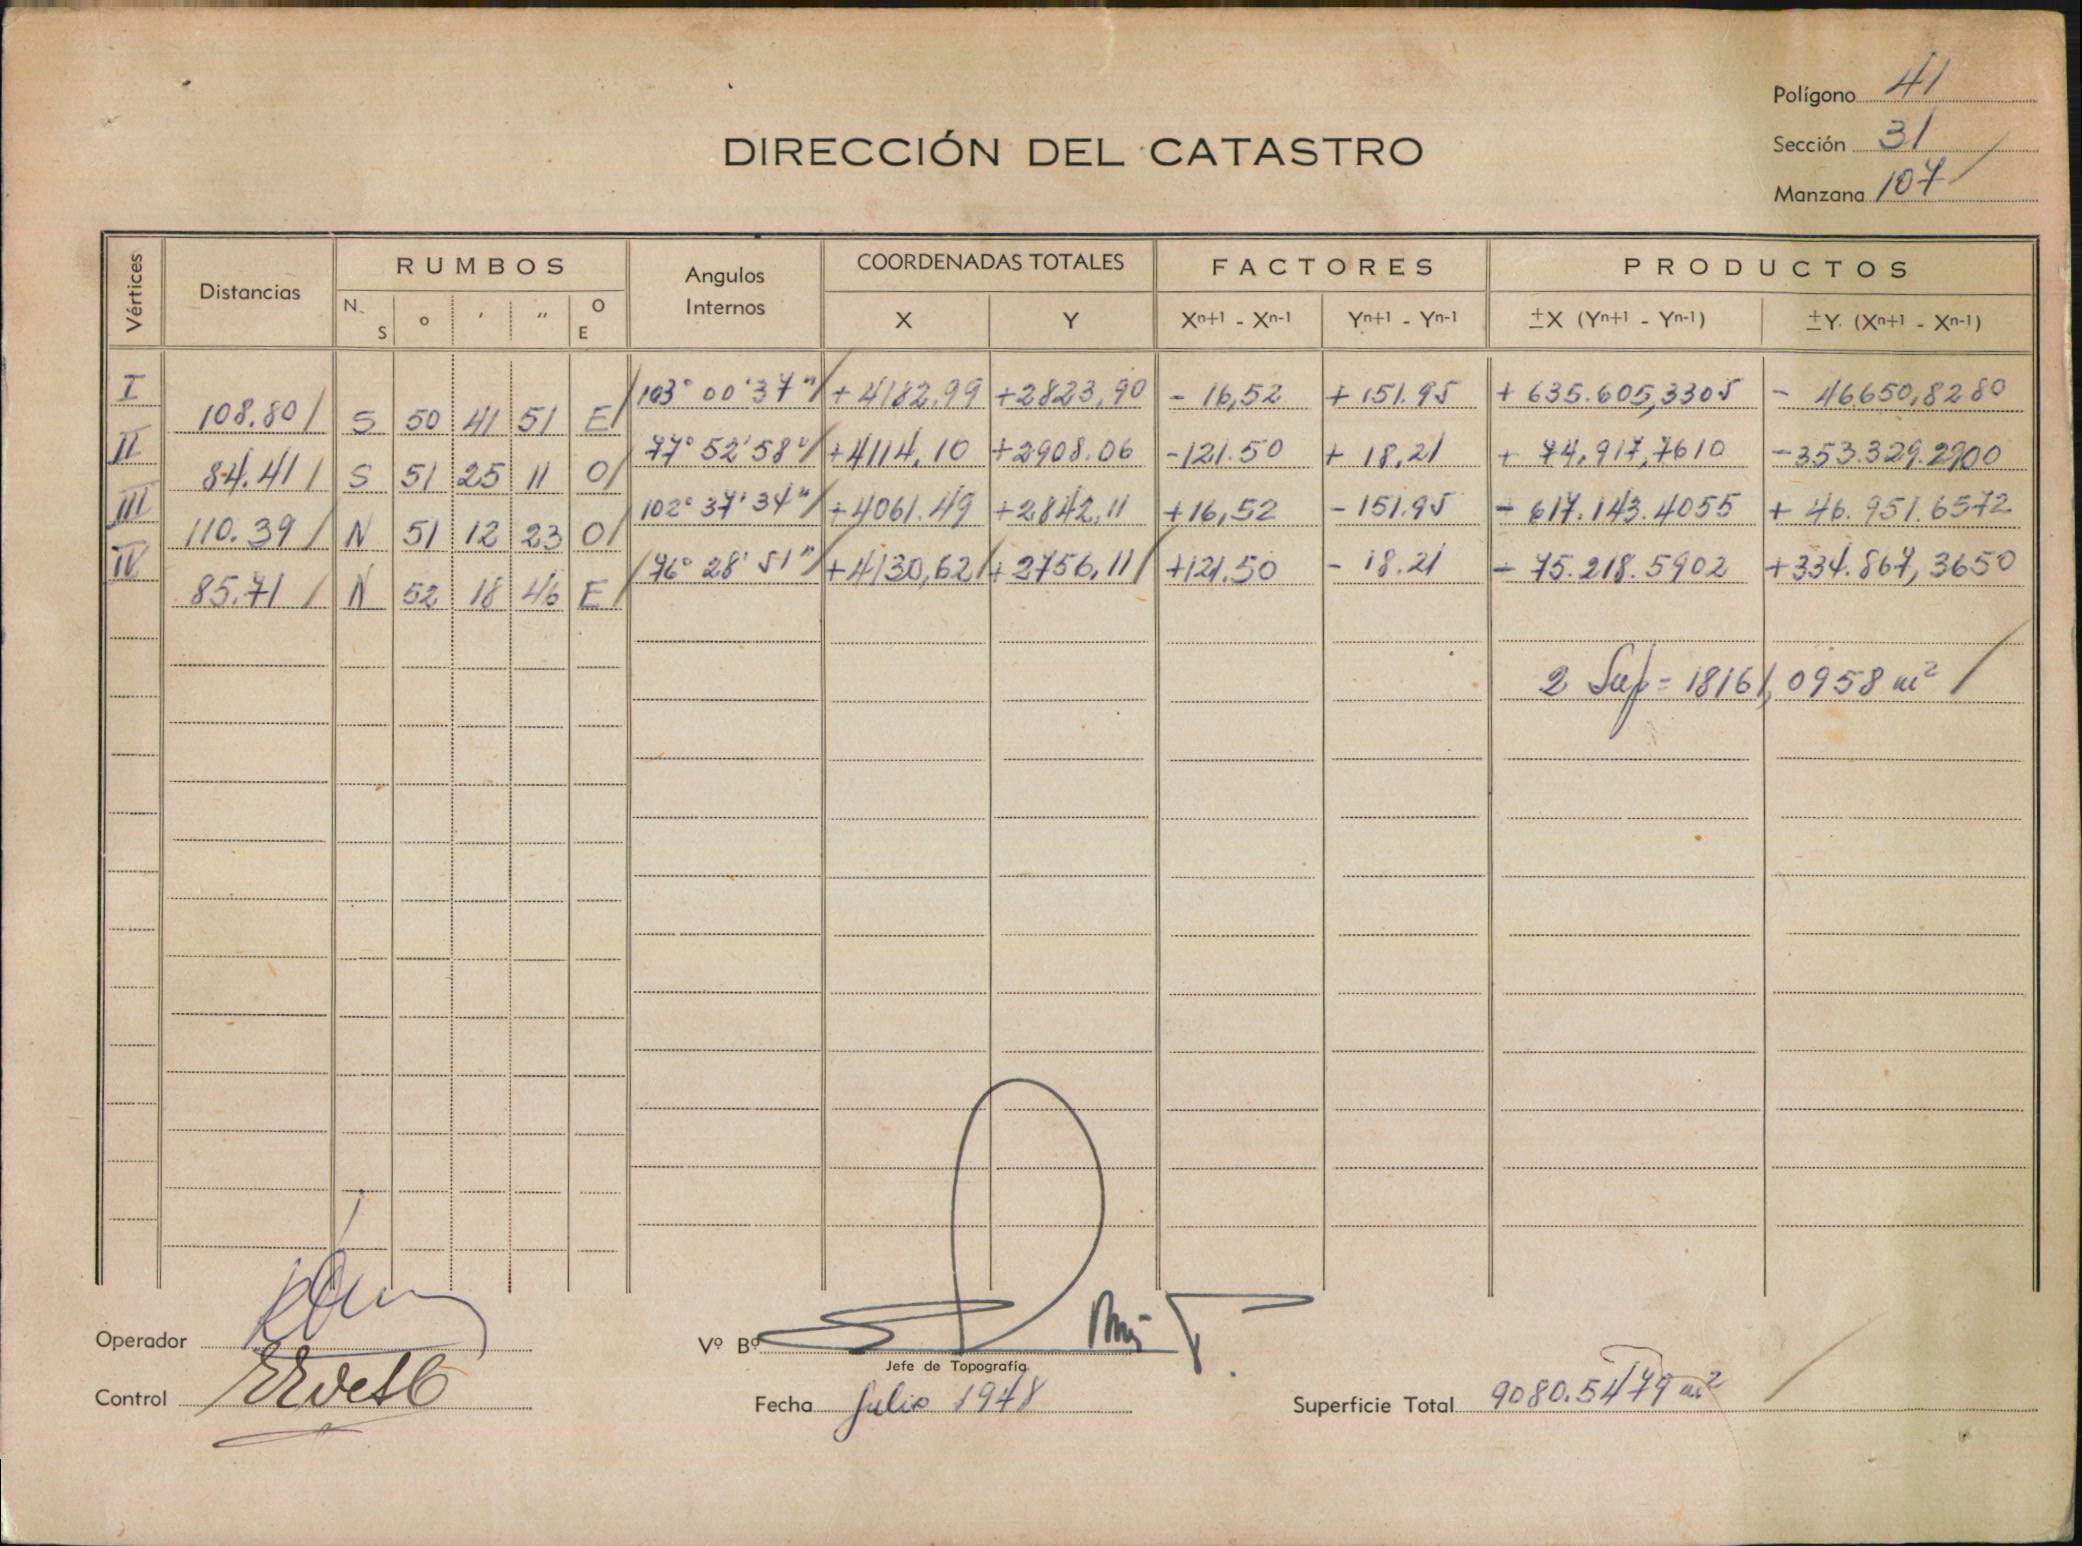 Polígono 41
DIRECCIÓN DEL CATASTRO
Sección 31
Manzana 107
Vértices Distancias RUMBOS Angulos Internos COORDENADAS TOTALES FACTORES PRODUCTOS
N. S o ' " O E X Y Xn+1 - Xn-1 Yn+1 - Yn-1 ±X (Yn+1 - Yn-1) ±Y. (Xn+1 - Xn-1)
I 103° 00' 37" +4182.99 +2823,90 - 16,52 + 151.95 + 635.605,3305 - 46650,8280
108.80 S 50 41 51 E
II 77° 52' 58" +4114,10 +2908.06 -121.50 + 18,21 + 74,917,7610 -353.329.2900
84.41 S 51 25 11 O
III 102° 37' 34" +4061.49 +2842,11 +16,52 - 151.95 - 617.143.4055 + 46.951.6572
110.39 N 51 12 23 O
IV 76° 28' 51" +4130,62 +2756,11 +121.50 - 18.21 - 75.218.5902 +334.867,3650
85.71 N 52 18 46 E
2 Sup = 18161,0958 m²
Operador
Vº Bº
Jefe de Topografía
Control
Fecha Julio 1948
Superficie Total 9080.5479 m²